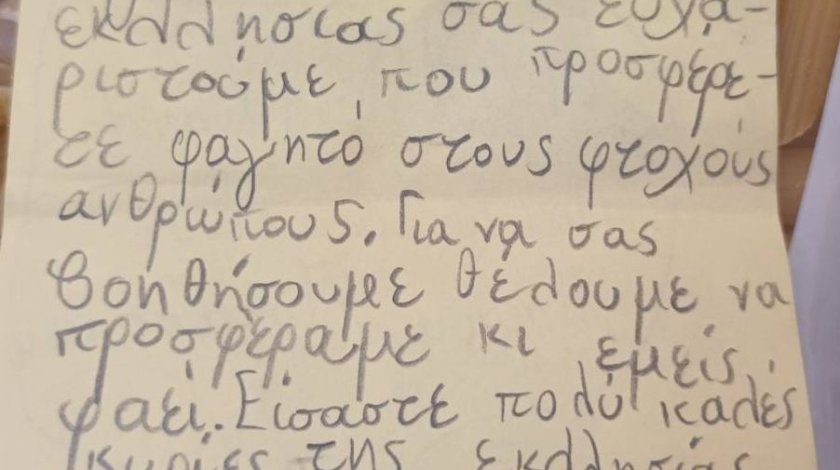 εκλλησιας σας ευχα-
ριστούμε, που προσφέρε-
τε φαγητό στους φτοχούς
ανθρώπους. Για να σας
βοηθήσουμε θέλουμε να
προσφέραμε κι εμείς
φαεί. Είσαστε πολύ καλές
κυρίες της εκλλησίας